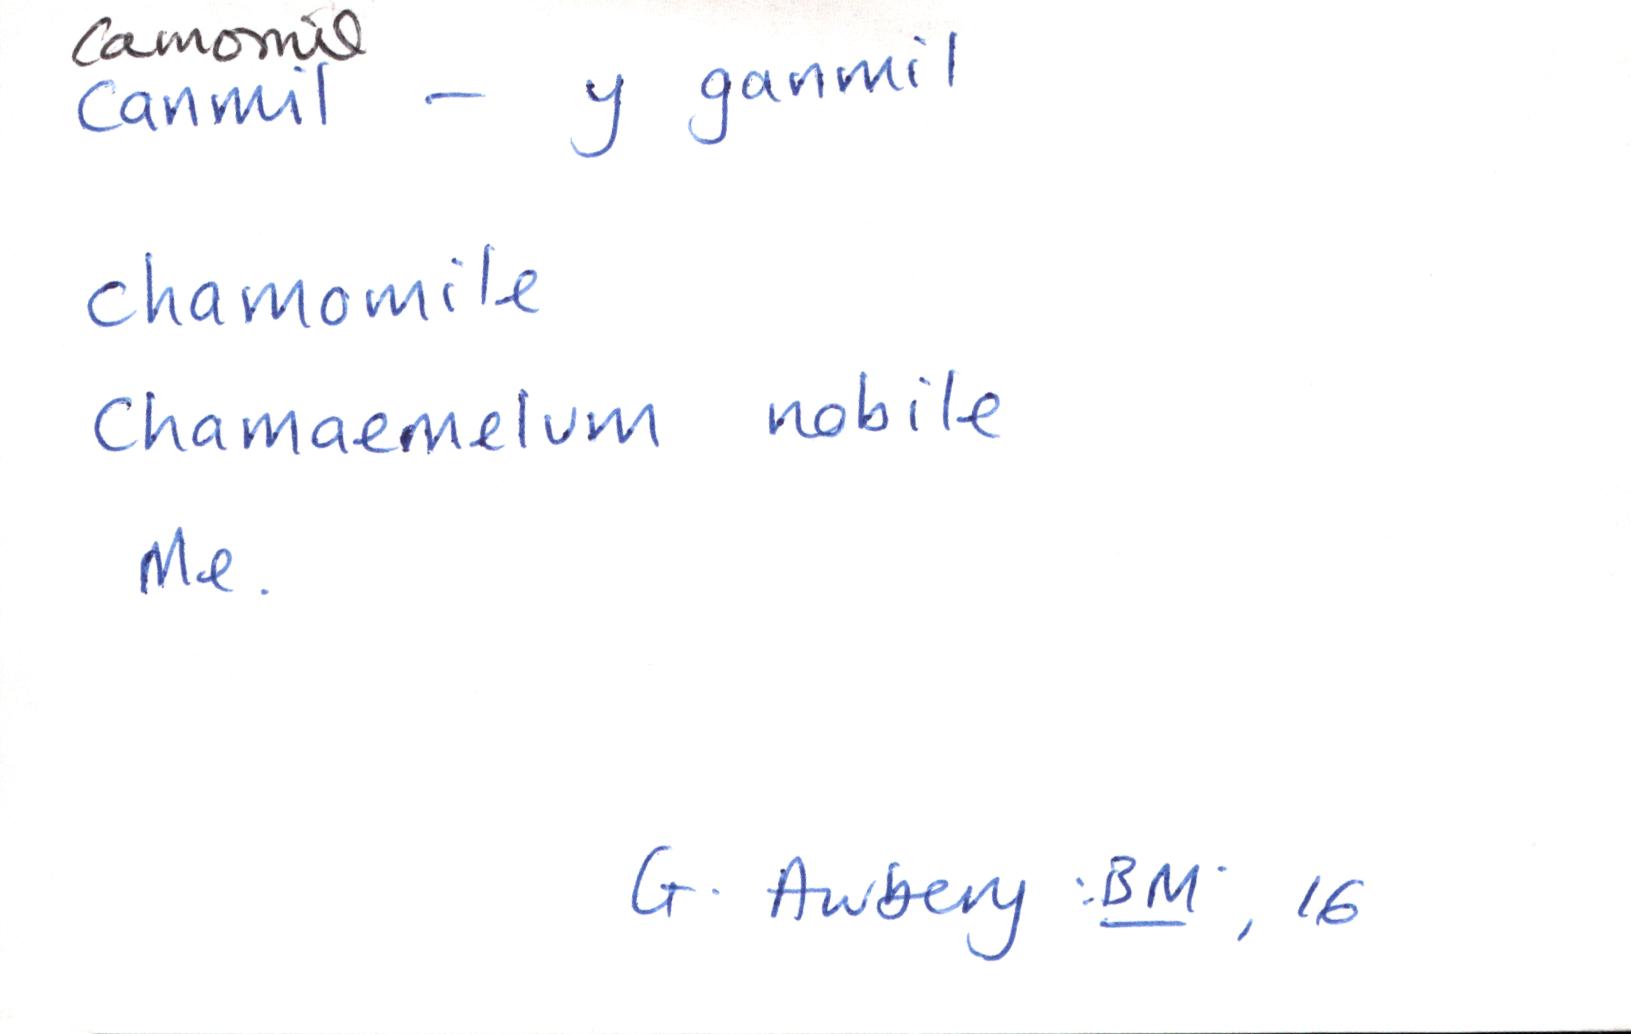 Camomil
Canmil – y ganmil
chamomile
Chamaemelum nobile
Me.
G. Awbery : BM , 16